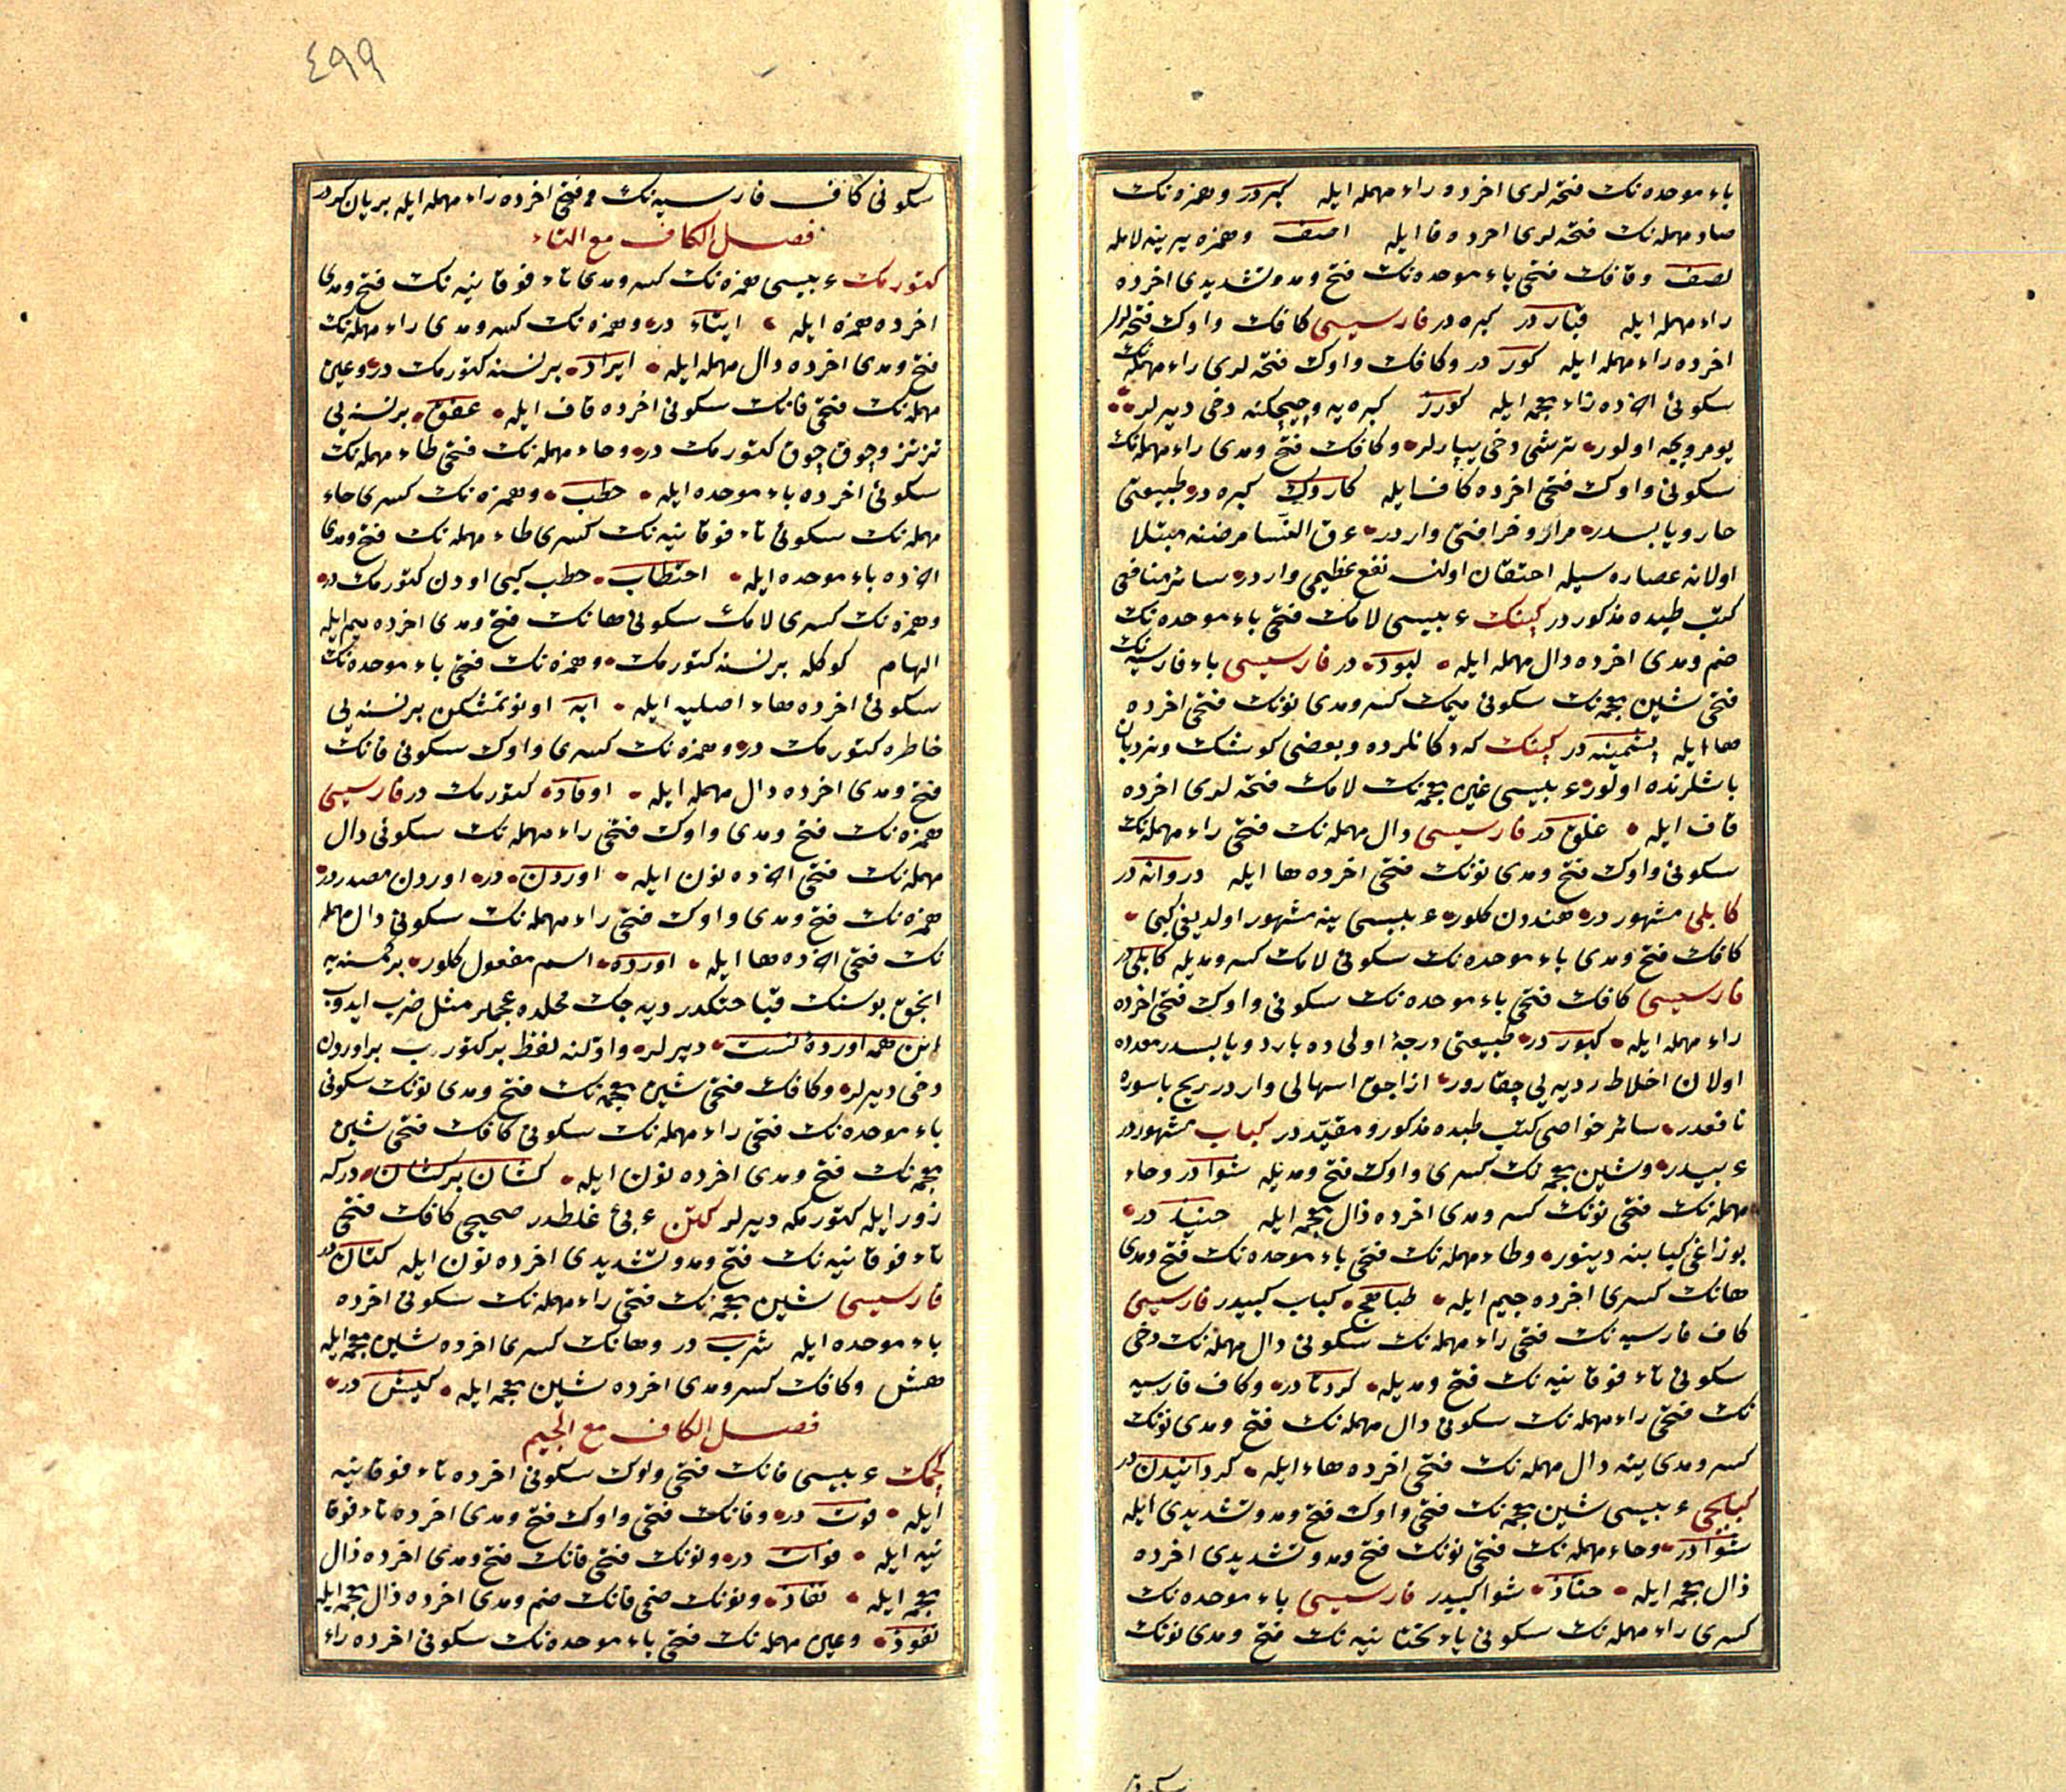 باء موحده نك فتحه لرى اخرده راء مهمله ايله كبر در وهمزه نك
صاد مهمله نك فتحه لرى اخرده فا ايله اصف وهمزه يرينه لامله
لصف وقافك فتحى باء موحده نك فتح ومد وتشديدى اخرده
راء مهمله ايله قبار در كبره در فارسيسى كافك واوك فتحه لرى
اخرده راء مهمله ايله كور در وكافك واوك فتحه لرى راء مهمله نك
سكونى اخرده زاء معجمه ايله كورز كبره يه وچيچكنه دخى ديرلر
يومروجه اولور ترشى دخى يپارلر وكافك فتح ومدى راء مهمله نك
سكونى واوك فتحى اخرده كاف ايله كاروك كبره در طبيعتى
حار ويابسدر مرار وخرافتى واردر عرق النسا مرضنه مبتلا
اولانه عصاره سيله احتقان اولنسه نفع عظيمى واردر سائر منافعى
كتب طبيده مذكور در كپنك عربيسى لامك فتحى باء موحده نك
ضم ومدى اخرده دال مهمله ايله لبود در فارسيسى باء فارسيه نك
فتحى شين معجمه نك سكونى ميمك كسر ومدى نونك فتحى اخرده
ها ايله پشمينه در كپنك كه دكانلرده وبعضى كوشك ونردبان
باشلرنده اولور عربيسى غين معجمه نك لامك فتحه لرى اخرده
قاف ايله غلق در فارسيسى دال مهمله نك فتحى راء مهمله نك
سكونى واوك فتح ومدى نونك فتحى اخرده ها ايله دروانه در
كابلى مشهور در هندون كلور عربيسى ينه مشهور اولديغى كبى
كافك فتح ومدى باء موحده نك سكونى لامك كسر ومديله كابلى در
فارسيسى كافك فتحى باء موحده نك سكونى واوك فتحى اخرده
راء مهمله ايله كبور در طبيعتى درجۀ اولى ده بارد ويابسدر معده ده
اولان اخلاط رديه يى چقارور ازاجق اسهالى واردر ريح باسوره
نافعدر سائر خواصى كتب طبده مذكور ومقيد در كباب مشهور در
عربيدر وشين معجمه نك كسرى واوك فتح ومديله شوا در وحاء
مهمله نك فتحى نونك كسر ومدى اخرده ذال معجمه ايله حنيذ در
بوزاغى كبابنه دينور وطاء مهمله نك فتحى باء موحده نك فتح ومدى
هانك كسرى اخرده جيم ايله طباهج كباب كبيدر فارسيسى
كاف فارسيه نك فتحى راء مهمله نك سكونى دال مهمله نك دخى
سكونى تاء فوقانيه نك فتح ومديله كردتا در وكاف فارسيه
نك فتحى راء مهمله نك سكونى دال مهمله نك فتح ومدى نونك
كسر ومدى ينه دال مهمله نك فتحى اخرده هاء ايله كردانيدن در
كبابجى عربيسى شين معجمه نك فتحى واوك فتح ومد وتشديدى ايله
شوا در وحاء مهمله نك فتحى نونك فتح ومد وتشديدى اخرده
ذال معجمه ايله حناذ شوا كبيدر فارسيسى باء موحده نك
كسرى راء مهمله نك سكونى ياء تحتانيه نك فتح ومدى نونك
سكونى
٤٩٩
سكونى كاف فارسيه نك وفتحى اخرده راء مهمله ايله بريان كر در
فصل الكاف مع التاء
كتورمك عربيسى همزه نك كسر ومدى تاء فوقانيه نك فتح ومدى
اخرده همزه ايله ايتاء در وهمزه نك كسر ومدى راء مهمله نك
فتح ومدى اخرده دال مهمله ايله ايراد برنسنه كتورمك در وعين
مهمله نك فتحى فانك سكونى اخرده قاف ايله عفق برنسنه يى
تز تز وچوق چوق كتورمك در وحاء مهمله نك فتحى طاء مهمله نك
سكونى اخرده باء موحده ايله حطب وهمزه نك كسرى حاء
مهمله نك سكونى تاء فوقانيه نك كسرى طاء مهمله نك فتح ومدى
اخرده باء موحده ايله احتطاب حطب كبى اودن كتورمك در
وهمزه نك كسرى لامك سكونى هانك فتح ومدى اخرده ميم ايله
الهام كوكله برنسنه كتورمك وهمزه نك فتحى باء موحده نك
سكونى اخرده هاء اصليه ايله ابه اونوتمشكن برنسنه يى
خاطره كتورمك در وهمزه نك كسرى واوك سكونى فانك
فتح ومدى اخرده دال مهمله ايله اوفاد كتورمك در فارسيسى
همزه نك فتح ومدى واوك فتحى راء مهمله نك سكونى دال
مهمله نك فتحى اخرده نون ايله اوردن در اوردن مصدر در
همزه نك فتح ومدى واوك فتحى راء مهمله نك سكونى دال مهمله
نك فتحى اخرده ها ايله اورده اسم مفعول كلور بركمسنه يه
انجق بوسنك قباحتكدر ديه جك محلده عجملر مثل ضرب ايدوب
اين همه اورده تست ديرلر واولنه لفظ بر كتوروب براوردن
دخى ديرلر وكافك فتحى شين معجمه نك فتح ومدى نونك سكونى
باء موحده نك فتحى راء مهمله نك سكونى كافك فتحى شين
معجمه نك فتح ومدى اخرده نون ايله كشان بركشان در كه
زور ايله كتورمكه ديرلر كتن عربى غلطدر صحيحى كافك فتحى
تاء فوقانيه نك فتح ومد وتشديدى اخرده نون ايله كتان در
فارسيسى شين معجمه نك فتحى راء مهمله نك سكونى اخرده
باء موحده ايله شرب در وهانك كسرى اخرده شين معجمه ايله
هش وكافك كسر ومدى اخرده شين معجمه ايله كيش در
فصل الكاف مع الجيم
كجمك عربيسى فانك فتحى واوك سكونى اخرده تاء فوقانيه
ايله فوت در وفانك فتحى واوك فتح ومدى اخرده تاء فوقا
نيه ايله فوات در ونونك فتحى فانك فتح ومدى اخرده ذال
معجمه ايله نفاذ ونونك ضمى فانك ضم ومدى اخرده ذال معجمه ايله
نفوذ وعين مهمله نك فتحى باء موحده نك سكونى اخرده راء